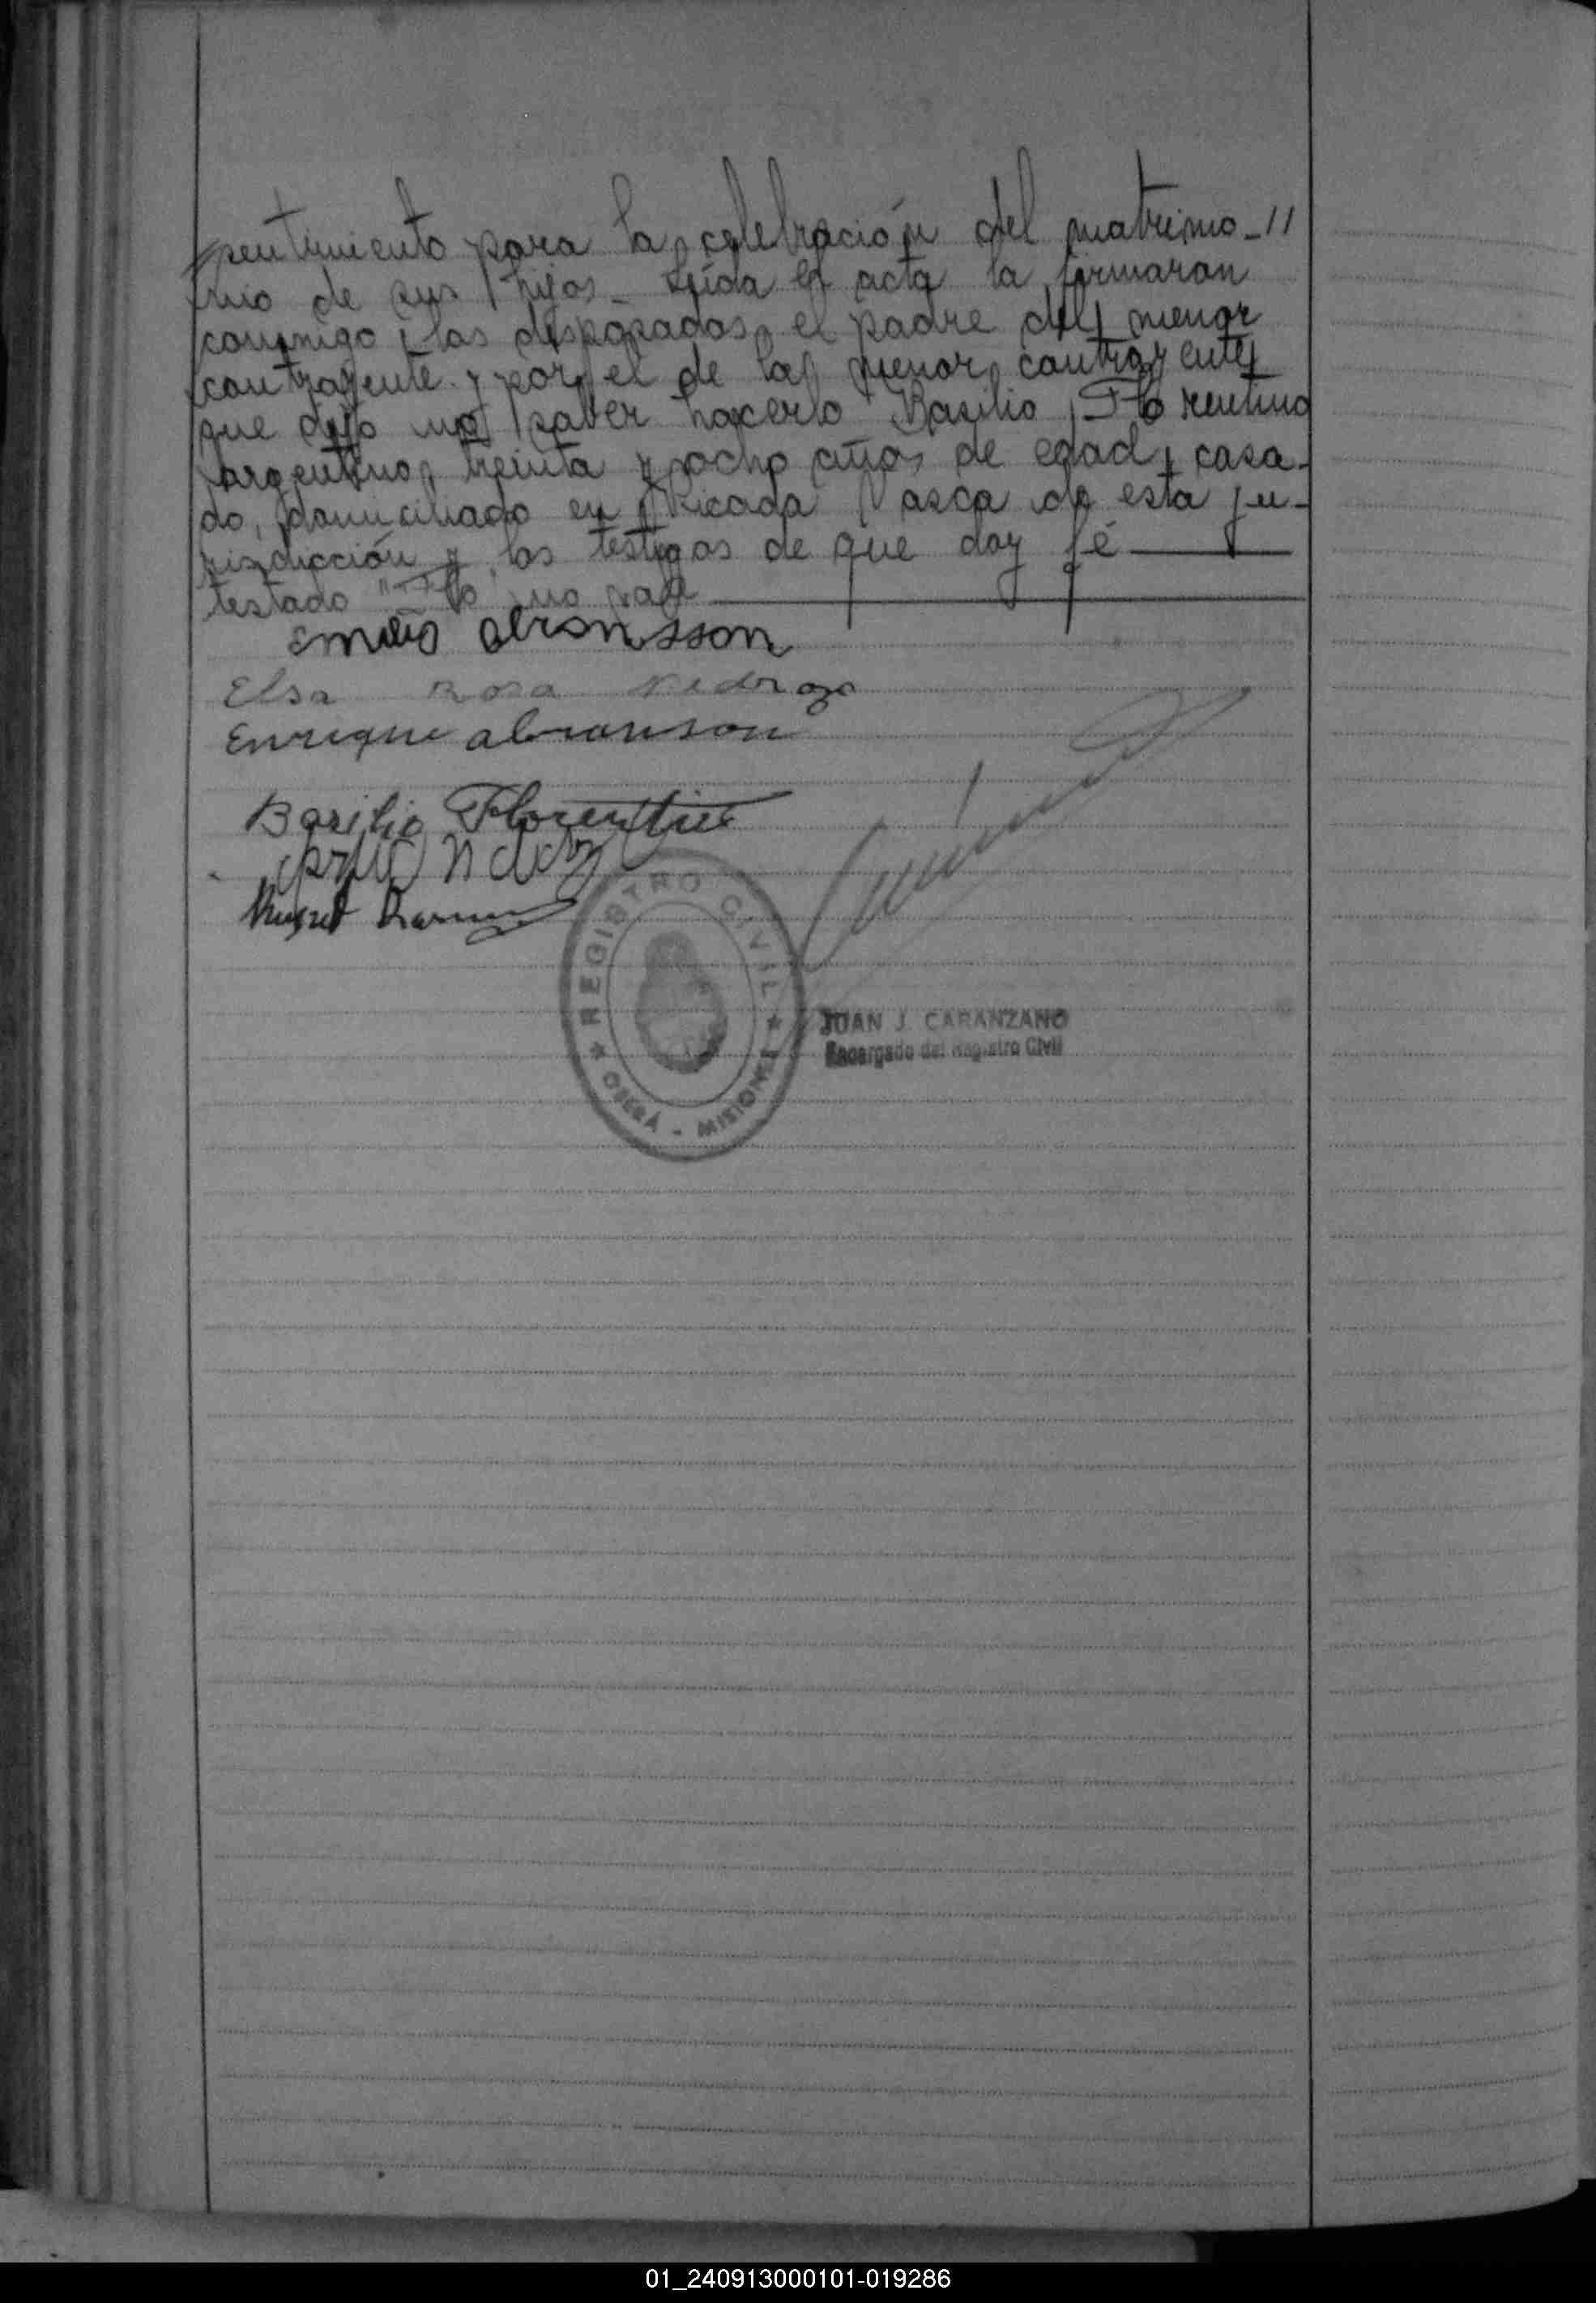 sentimiento para la celebración del matrimo-//
nio de sus hijos_ Leída el acta la firmaron
conmigo, los desposados, el padre del menor
contrayente y por el de la menor contrayente
que dijo no saber hacerlo Basilio Flo rentino
argentino, treinta y ocho años de edad, casa-
do, domiciliado en Picada Vasca de esta ju-
risdicción y los testigos de que doy fé
testado "Flo" no vale
Emilio abransson
Elsa Rosa Pedrozo
Enrique abranson
Basilio Florentin
REGISTRO CIVIL
OBERÁ - MISIONES
JUAN J. CARANZANO
Encargado del Registro Civil
01_240913000101-019286